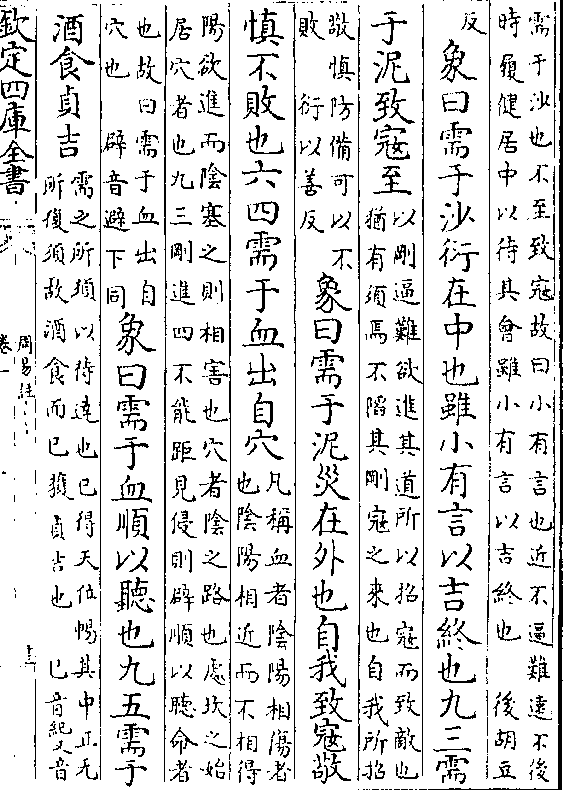 需于沙也不至致寇故曰小有言也近不逼難逺不後
時履健居中以待其會雖小有言以吉終也　後胡豆
反
象曰需于沙衍在中也雖小有言以吉終也九三需
于泥致寇至
以剛逼難欲進其道所以招寇而致敵也
猶有須焉不陷其剛寇之來也自我所招
敬慎防備可以不
敗　衍以善反
象曰需于泥災在外也自我致寇敬
慎不敗也六四需于血出自穴
凡稱血者陰陽相傷者
也陰陽相近而不相得
陽欲進而陰塞之則相害也穴者陰之路也處坎之始
居穴者也九三剛進四不能距見侵則辟順以聽命者
也故曰需于血出自
穴也　辟音避下同
象曰需于血順以聽也九五需于
酒食貞吉
需之所須以待達也已得天位暢其中正无
所復須故酒食而已獲貞吉也　已音紀又音
欽定四庫全書
周易註
卷一
十三